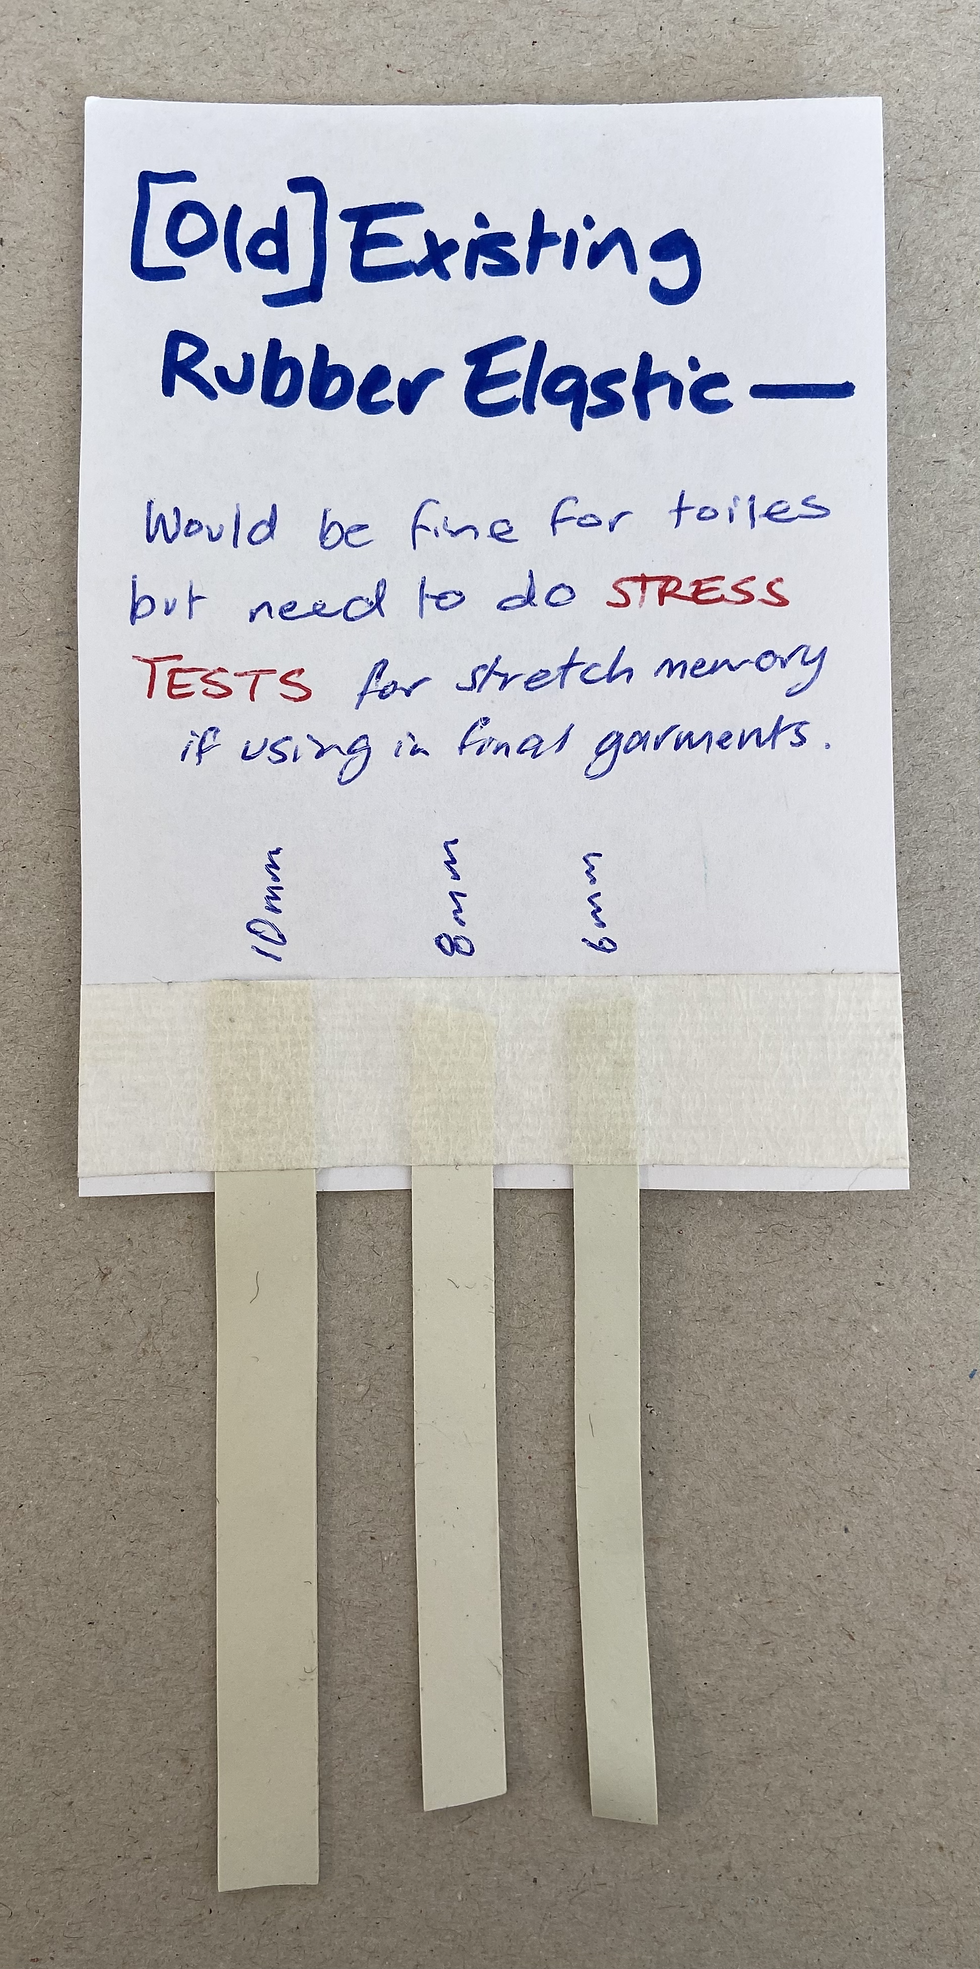 [Old] Existing
Rubber Elastic —
Would be fine for toiles
but need to do STRESS
TESTS for stretch memory
if using in final garments.
10mm 8mm 6mm